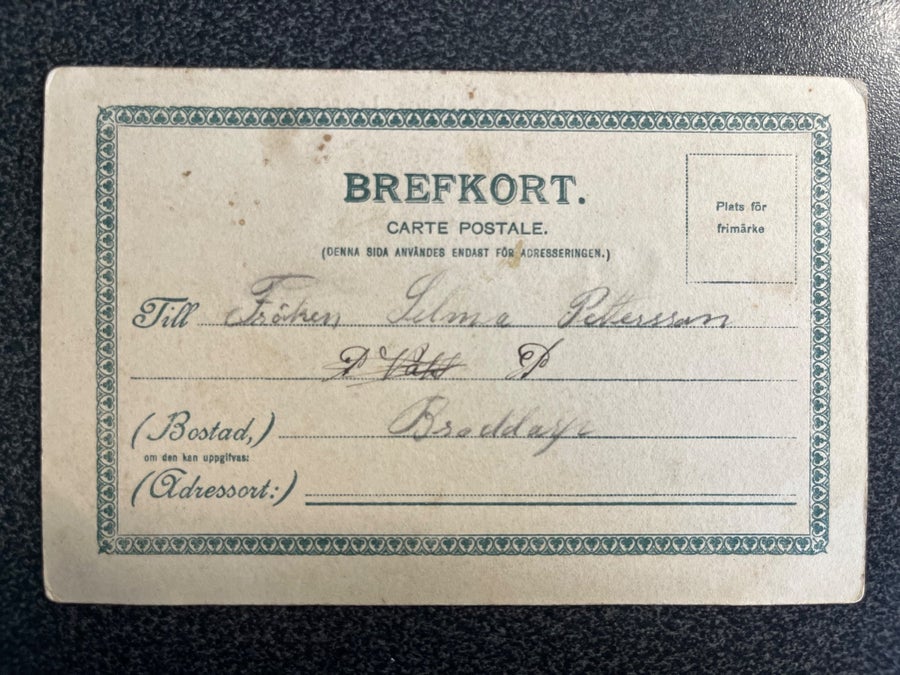 BREFKORT.
CARTE POSTALE.
(DENNA SIDA ANVÄNDES ENDAST FÖR ADRESSERINGEN.)
Plats för
frimärke
Till Fröken Selma Pettersson
(Bostad,)
om den kan uppgifvas:
(Adressort:)